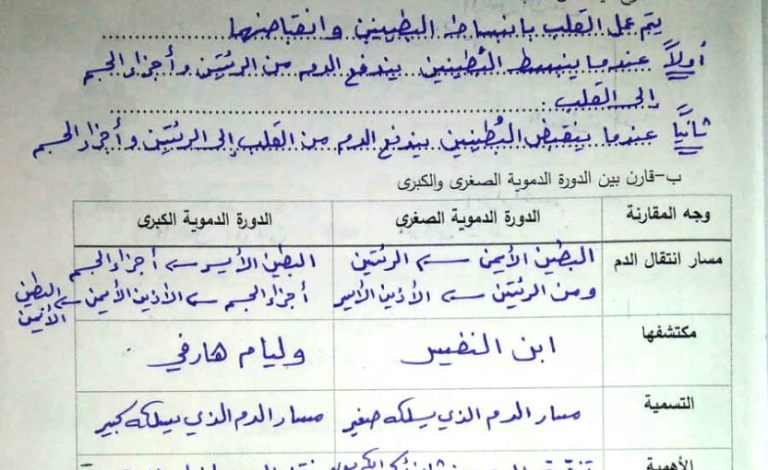 يتم عمل القلب بانبساط البطينين وانقباضهما
أولاً عندما ينبسط البُطينين يندفع الدم من الرئتين وأجزاء الجسم
إلى القلب .
ثانيًا عندما ينقبض البُطينين يندفع الدم من القلب إلى الرئتين وأجزاء الجسم
ب-قارن بين الدورة الدموية الصغرى والكبرى
وجه المقارنة الدورة الدموية الصغرى الدورة الدموية الكبرى
مسار انتقال الدم البطين الأيمن ← الرئتين البطين الأيسر ← أجزاء الجسم
ومن الرئتين ← الأذين الأيسر أجزاء الجسم ← الأذين الأيمن ← البطين الأيمن
مكتشفها ابن النفيس وليام هارفي
التسمية مسار الدم الذي يسلكه صغير مسار الدم الذي يسلكه كبير
الأهمية